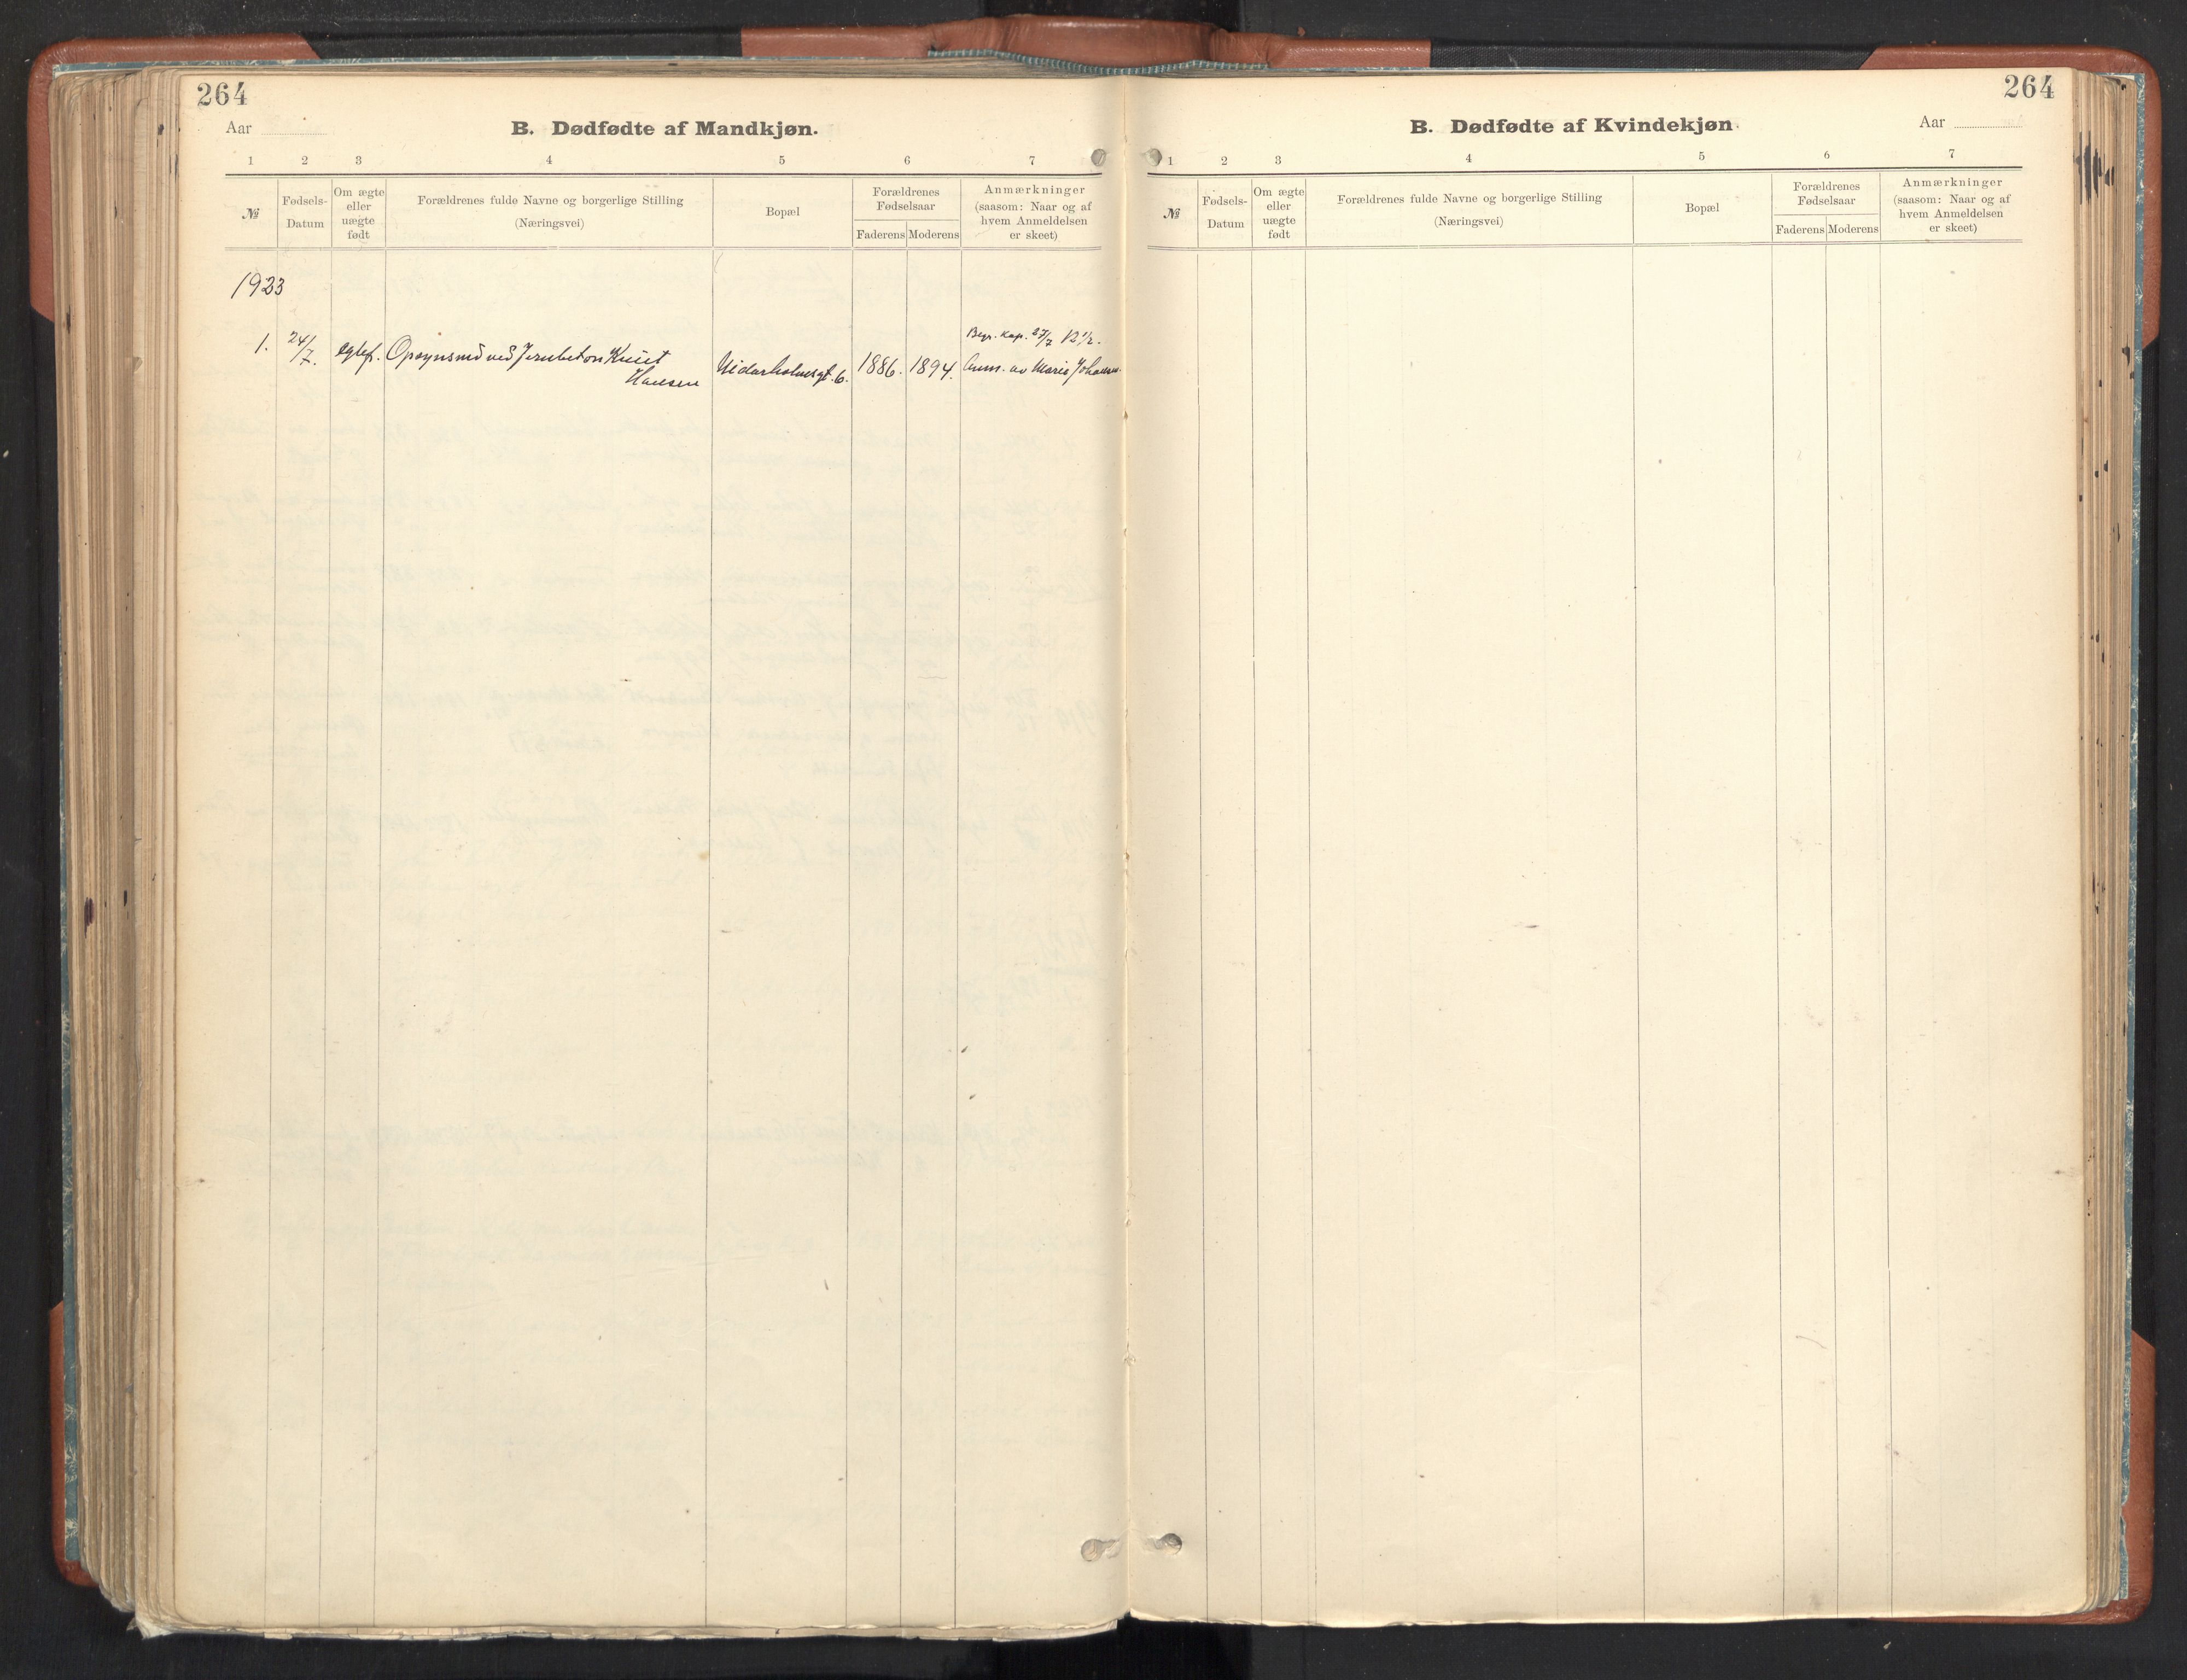 264
Aar
B. Dødfødte af Mandkjøn.
1 2 3 4 5 6 7
№
Fødsels-
Datum
Om ægte
eller
uægte
født
Forældrenes fulde Navne og borgerlige Stilling
(Næringsvei)
Bopæl
Forældrenes
Fødselsaar
Faderens Moderens
Anmærkninger
(saasom: Naar og af
hvem Anmeldelsen
er skeet)
1923
1. 24/7. egtef. Opsynsmd ved Jernbeton Knut
Hansen
Nidarholmsgt. 6. 1886. 1894.
Begr. Kap. 27/7 12 1/2.
Anm. av Marie Johansen.
264
B. Dødfødte af Kvindekjøn.
Aar
1 2 3 4 5 6 7
№
Fødsels-
Datum
Om ægte
eller
uægte
født
Forældrenes fulde Navne og borgerlige Stilling
(Næringsvei)
Bopæl
Forældrenes
Fødselsaar
Faderens Moderens
Anmærkninger
(saasom: Naar og af
hvem Anmeldelsen
er skeet)